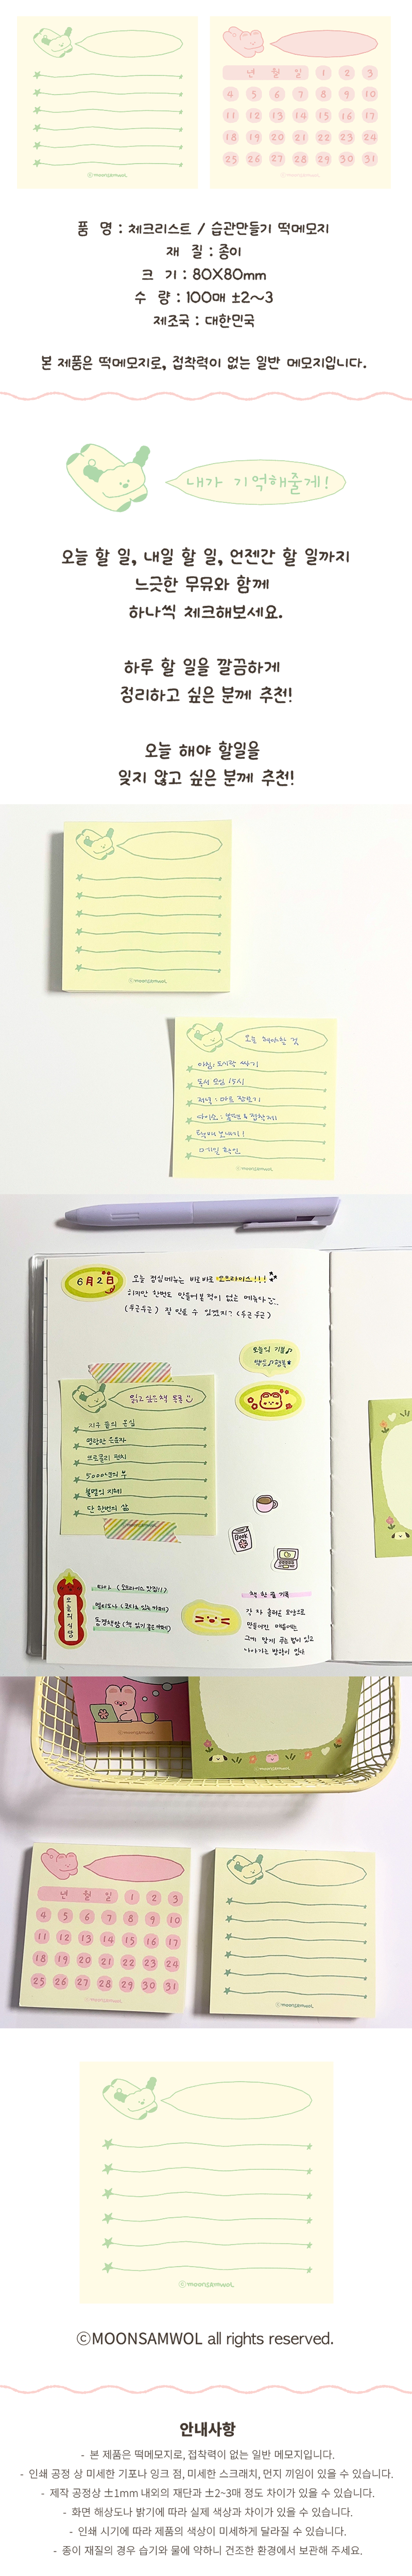 ⓒmoonsamwol
년 월 일 1 2 3
4 5 6 7 8 9 10
11 12 13 14 15 16 17
18 19 20 21 22 23 24
25 26 27 28 29 30 31
ⓒmoonsamwol
품 명 : 체크리스트 / 습관만들기 떡메모지
재 질 : 종이
크 기 : 80X80mm
수 량 : 100매 ±2~3
제조국 : 대한민국
본 제품은 떡메모지로, 접착력이 없는 일반 메모지입니다.
내가 기억해줄게!
오늘 할 일, 내일 할 일, 언젠간 할 일까지
느긋한 무뮤와 함께
하나씩 체크해보세요.
하루 할 일을 깔끔하게
정리하고 싶은 분께 추천!
오늘 해야 할일을
잊지 않고 싶은 분께 추천!
ⓒmoonsamwol
오늘 해야할 것
아침: 도시락 싸기
독서 모임 15시
ⓒmoonsamwol
6월 2일
오늘 점심메뉴는 바로바로 오므라이스!!!
하지만 한번도 만들어본적이 없는 메뉴다
(두근두근) 잘 만들 수 있겠지? (두근두근)
오늘의 기분♪
읽고싶은책 목록
지구 끝의 온실
명랑한 은둔자
브로콜리 펀치
5000년의 부
불멸의 지혜
단 한번의 삶
BOOK
오늘의 식당
책 한 줄 기록
ⓒmoonsamwol
년 월 일 1 2 3
4 5 6 7 8 9 10
11 12 13 14 15 16 17
18 19 20 21 22 23 24
25 26 27 28 29 30 31
ⓒmoonsamwol
ⓒmoonsamwol
ⓒmoonsamwol
ⓒMOONSAMWOL all rights reserved.
안내사항
- 본 제품은 떡메모지로, 접착력이 없는 일반 메모지입니다.
- 인쇄 공정 상 미세한 기포나 잉크 점, 미세한 스크래치, 먼지 끼임이 있을 수 있습니다.
- 제작 공정상 ±1mm 내외의 재단과 ±2~3매 정도 차이가 있을 수 있습니다.
- 화면 해상도나 밝기에 따라 실제 색상과 차이가 있을 수 있습니다.
- 인쇄 시기에 따라 제품의 색상이 미세하게 달라질 수 있습니다.
- 종이 재질의 경우 습기와 물에 약하니 건조한 환경에서 보관해 주세요.